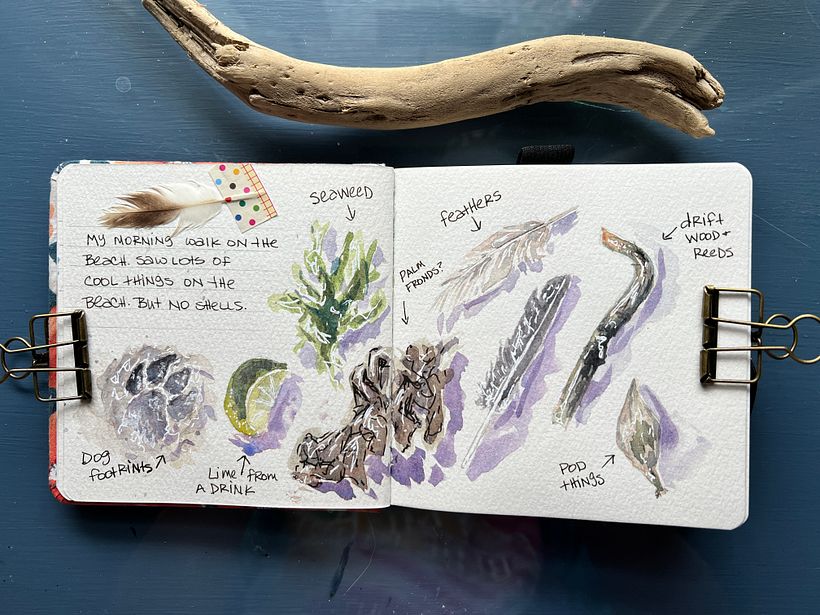 My morning walk on the
Beach. Saw lots of
cool things on the
Beach. But no shells.
seaweed
Dog
footrints
Lime from
a drink
Palm
fronds?
feathers
drift
wood +
reeds
Pod
things